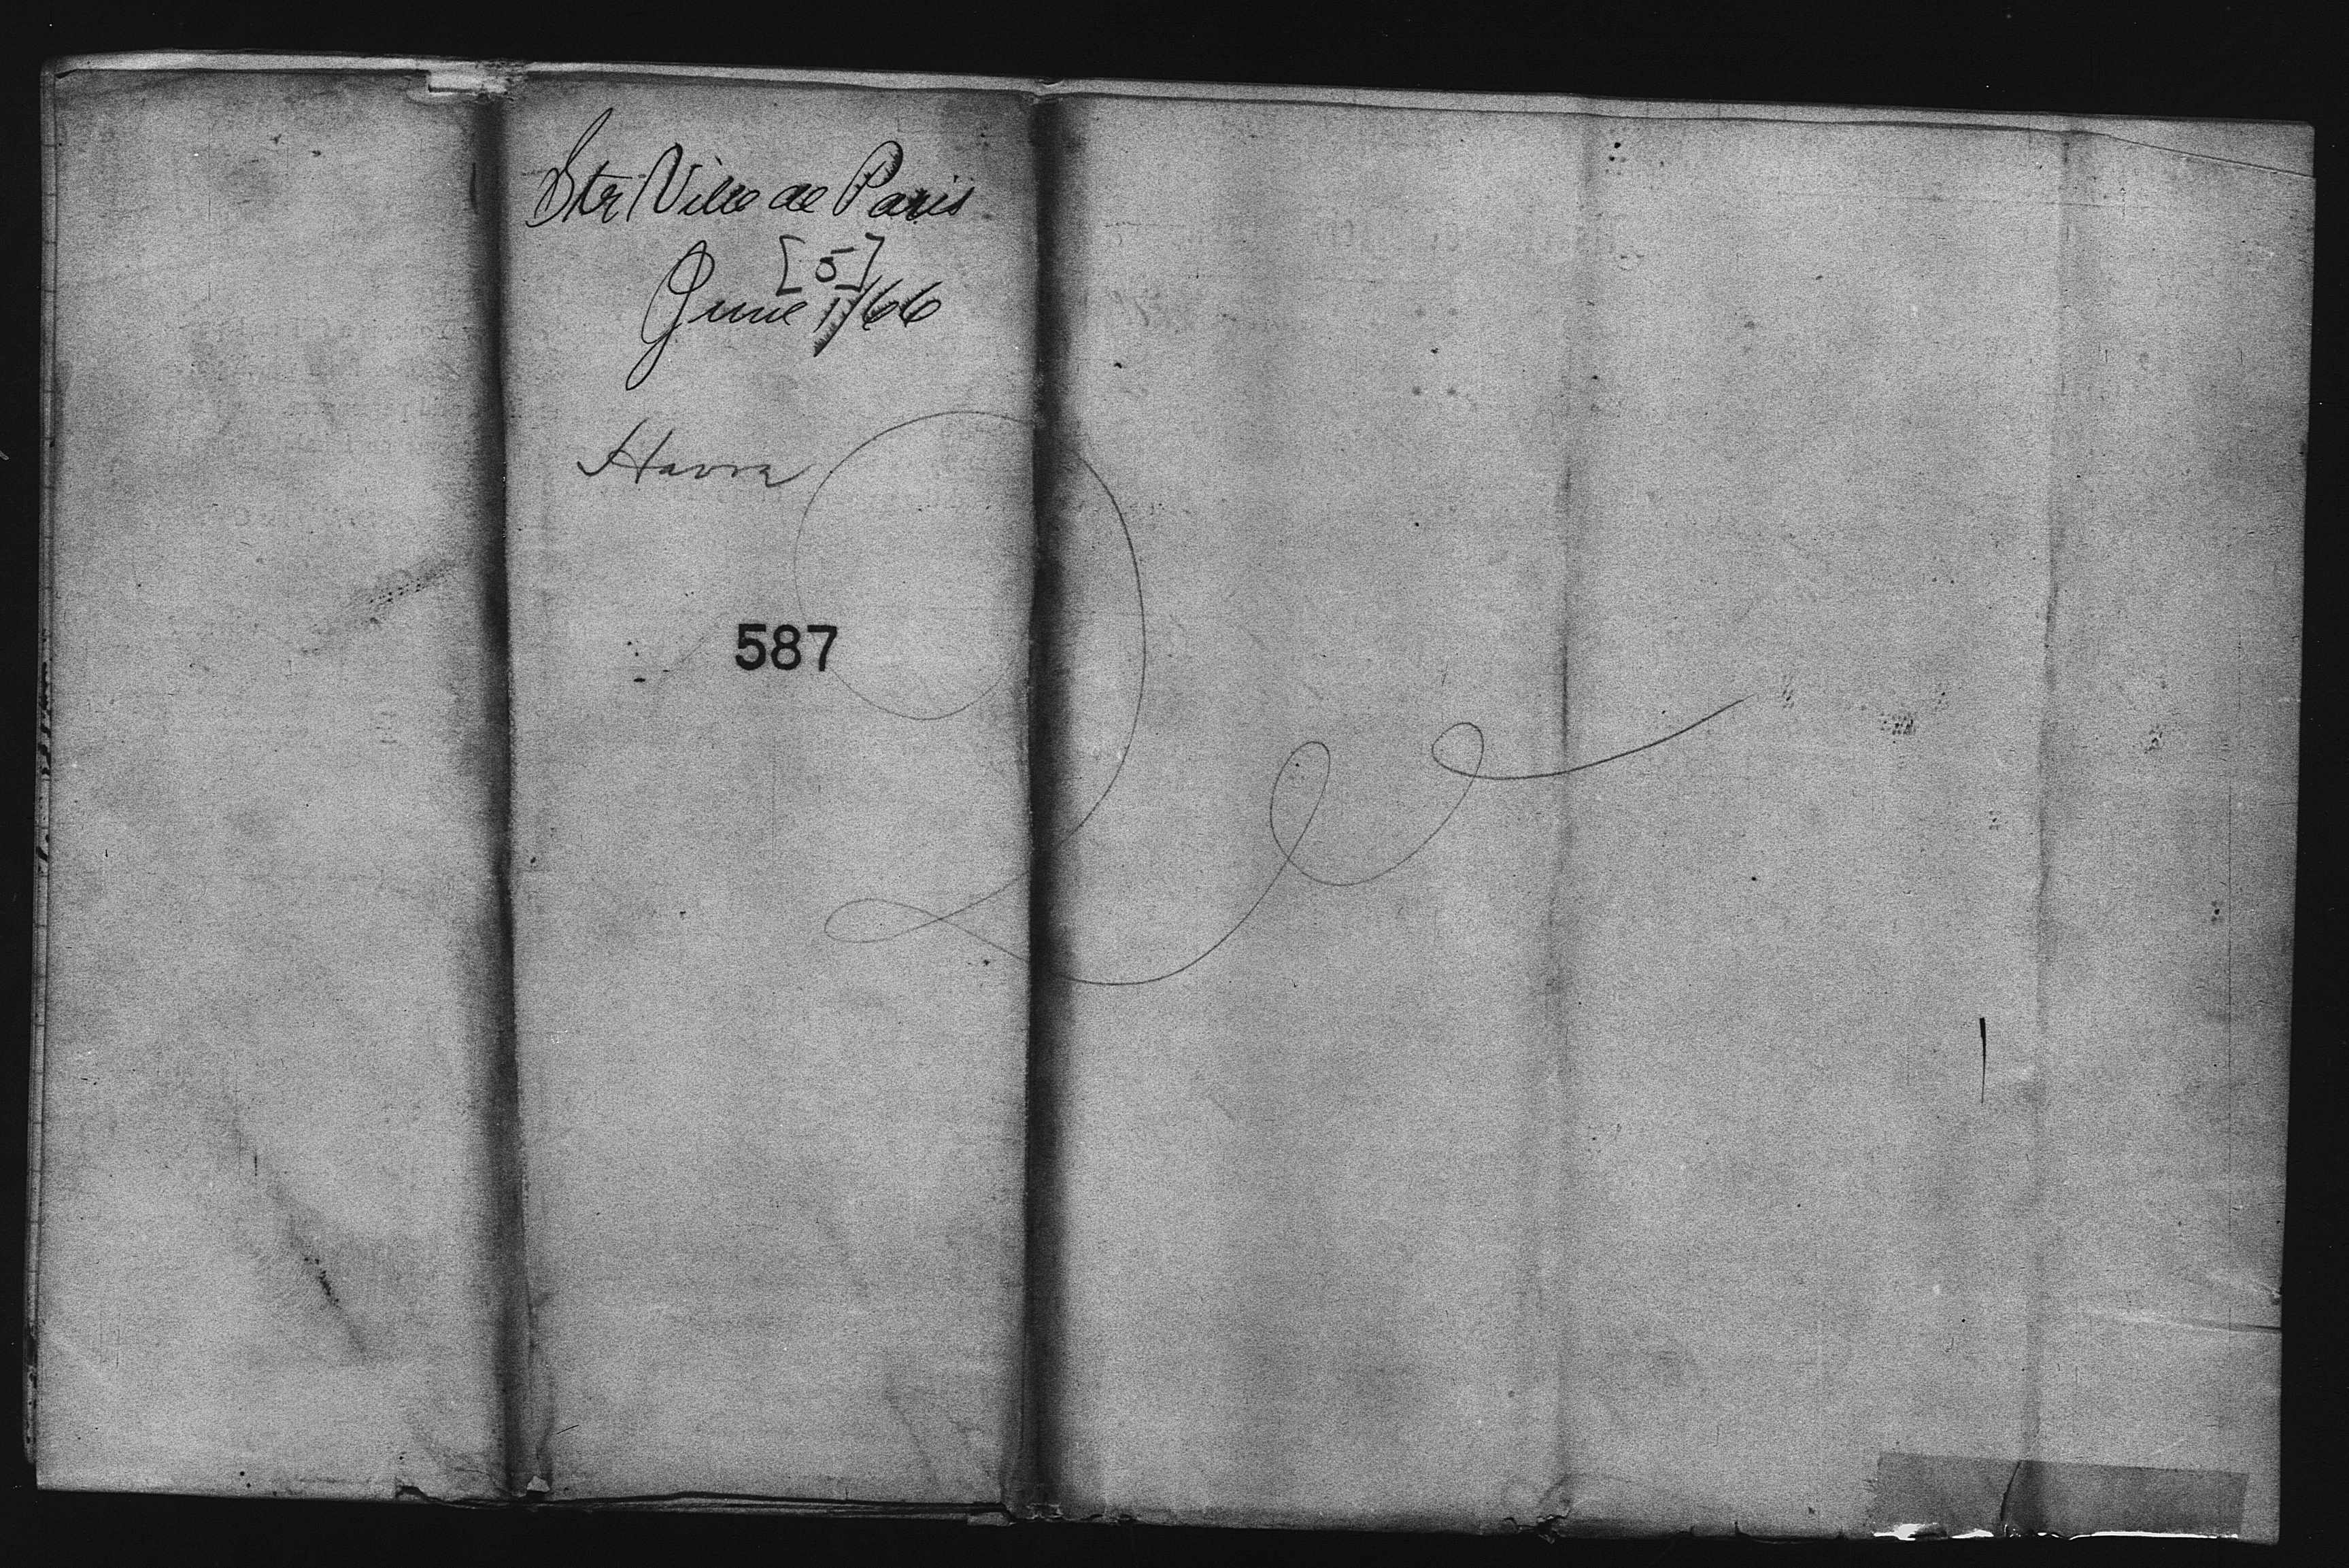 Str Ville de Paris
[5]
June 1/66
Havre
587